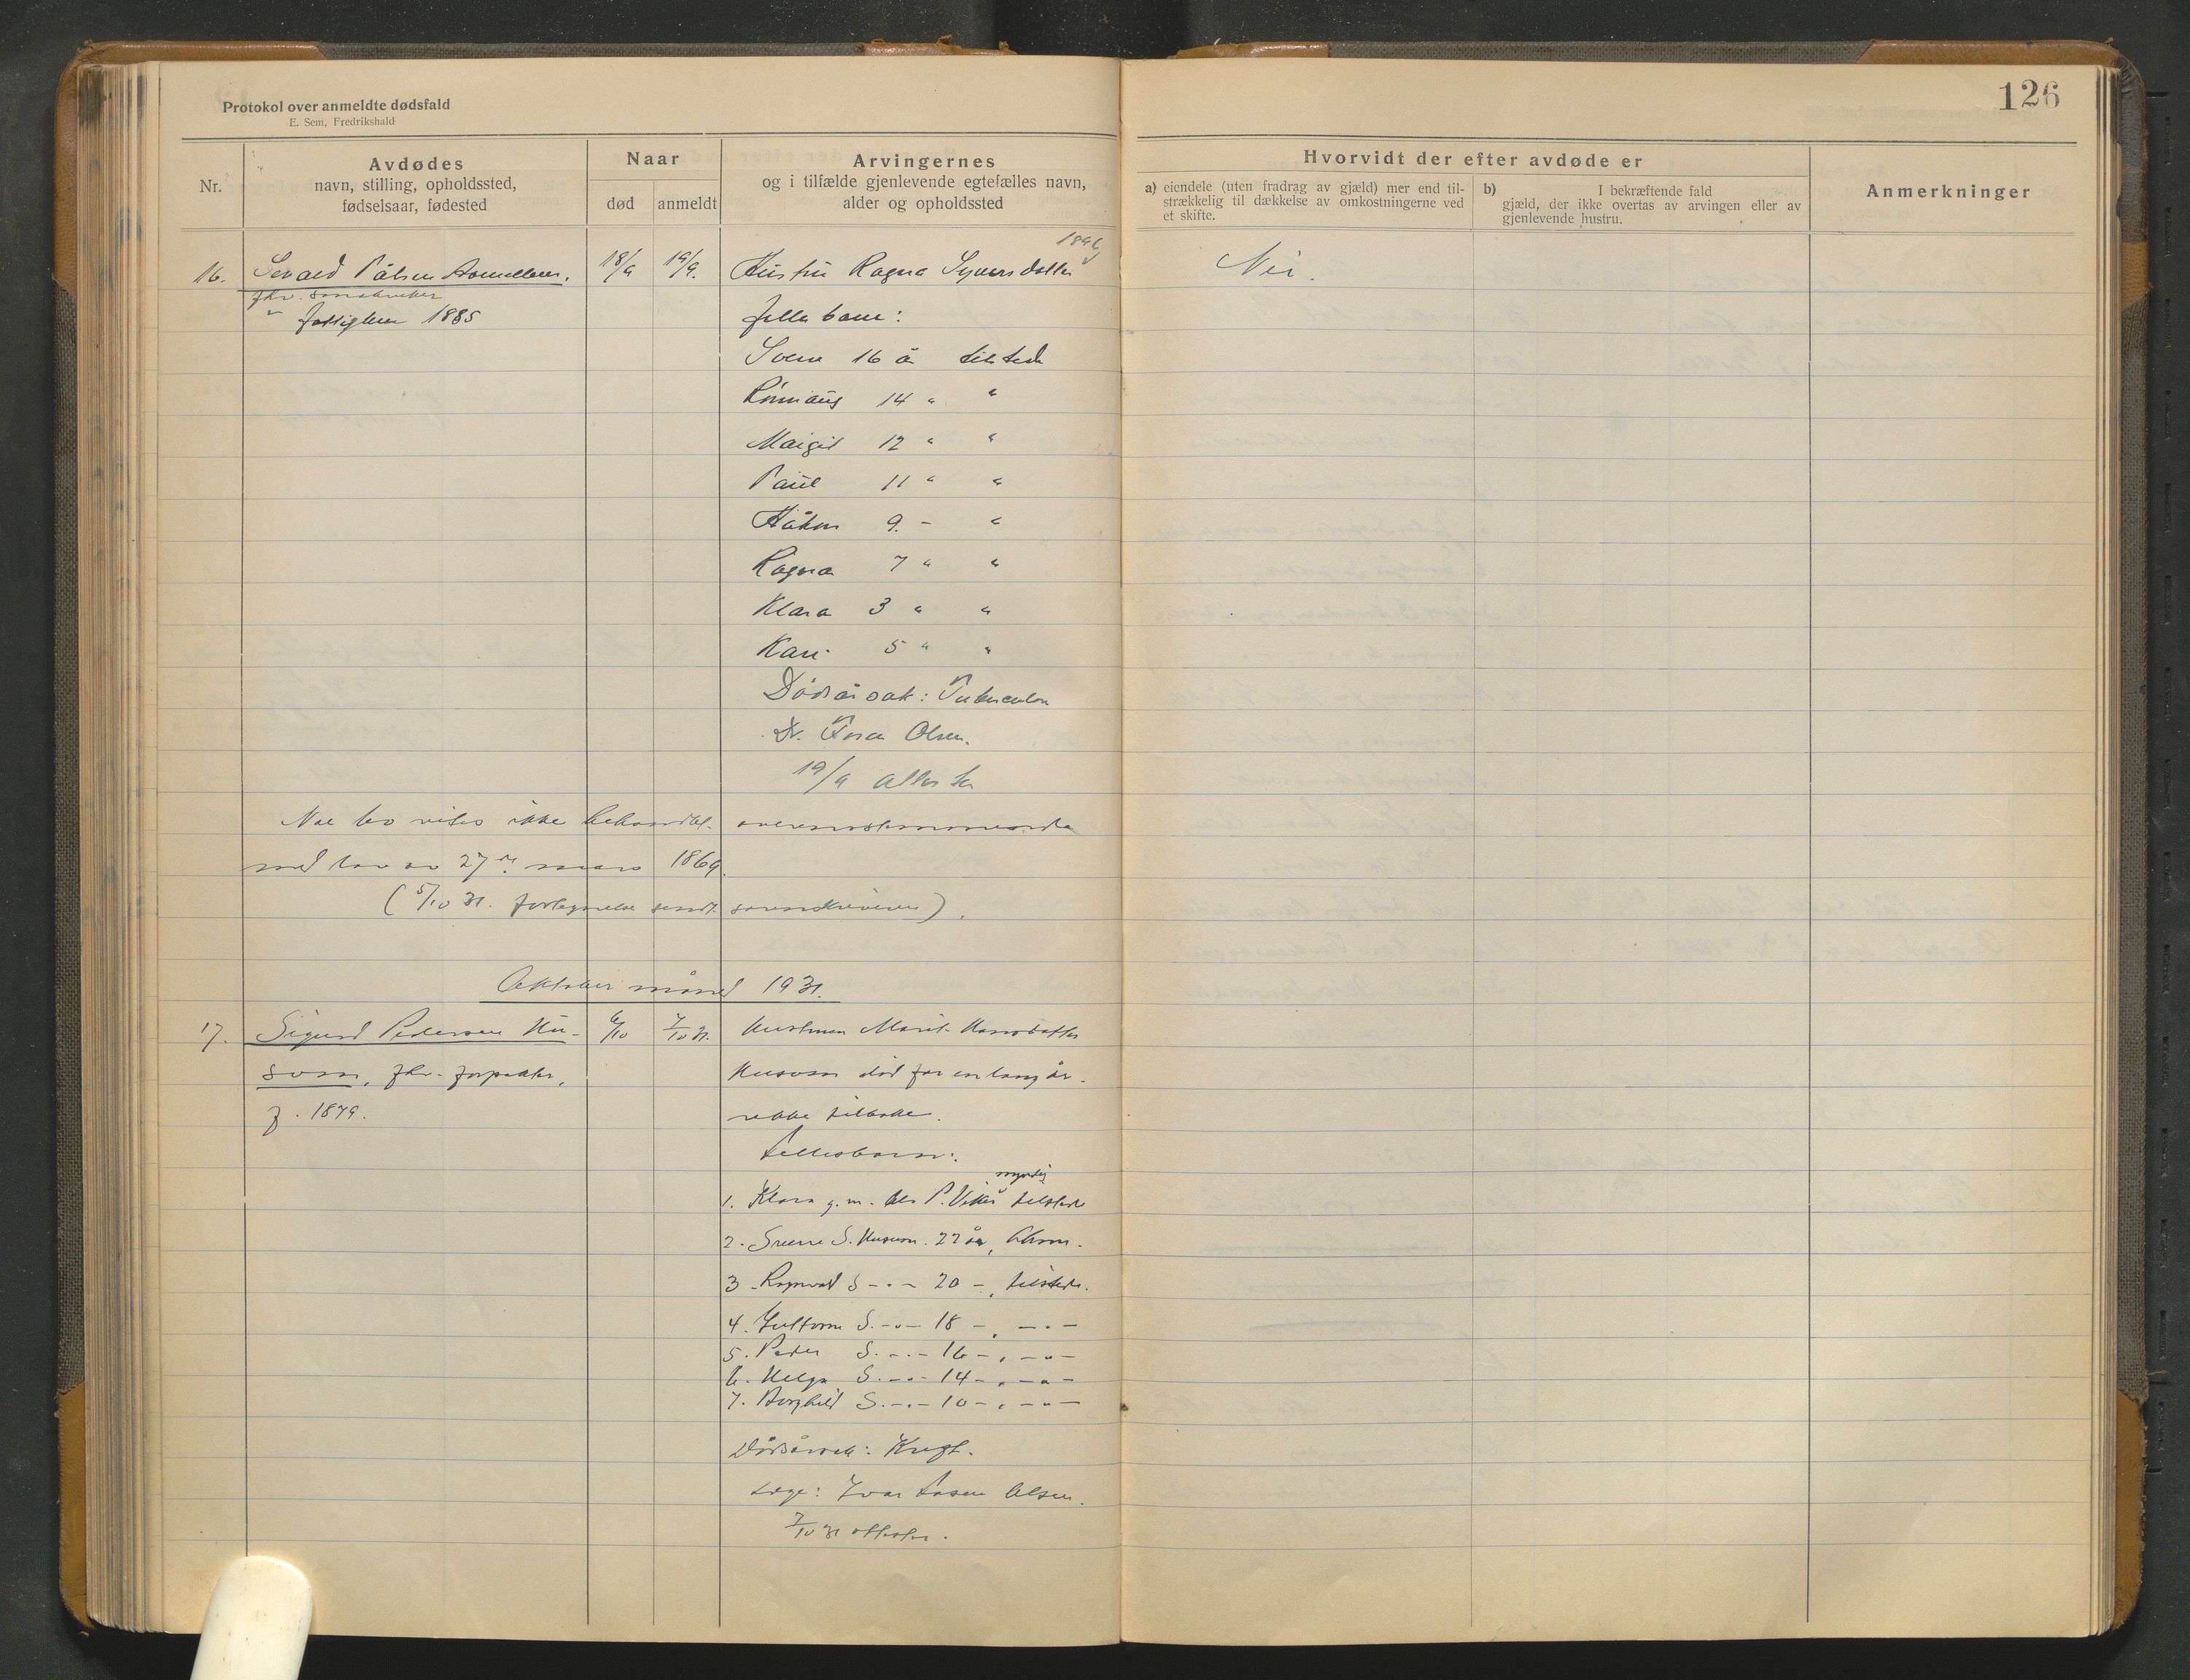 126
Protokol over anmeldte dødsfald
E. Sem, Fredrikshald
Nr.
Avdødes
navn, stilling, opholdssted,
fødselsaar, fødested
Naar
død
anmeldt
Arvingernes
og i tilfælde gjenlevende egtefælles navn,
alder og opholdssted
Hvorvidt der efter avdøde er
a) eiendele (uten fradrag av gjæld) mer end til-
strækkelig til dækkelse av omkostningerne ved
et skifte.
b) I bekræftende fald
gjæld, der ikke overtas av arvingen eller av
gjenlevende hustru.
Anmerkninger
16. Sevald Pålsen 18/9 19/9. Hustru Ragna Syversdatter Nei.
1885 fellesbarn:
16 år tilstede
Rønnaug 14 " "
Margit 12 " "
Paul 11 " "
Håkon 9 - "
Ragna 7 " "
Klara 3 " "
Kari 5 " "
Dødsårsak: Tuberculose
Dr. Olsen.
19/9 attester
ikke behandlet overensstemmende
med lov av 27de mars 1869.
(5/10 31. fortegnelse sendt sorenskriveren).
Oktober måned 1931.
17. Sigurd Pedersen Hu- 6/10 7/10 31. Hustruen Marit Hansdatter
sum, fhv. forpakter, Husum død for en lang år-
f. 1879. rekke tilbake.
Fellesbarn:
myndig
1. Klara g.m. P. tilstede
2. Sverre S. Husum. 22 år,
3. Ragnvald S -"- 20 -, tilstede.
4. Guttorm S. -"- 18 -, -"-
5. Peder S. -"- 16 -, -"-
6. Helga S. -"- 14 -, -"-
7. Borghild S. -"- 10 -, -"-
Dødsårsak: Kreft.
Læge: Ivar Aasen Olsen.
7/10 31 attester.